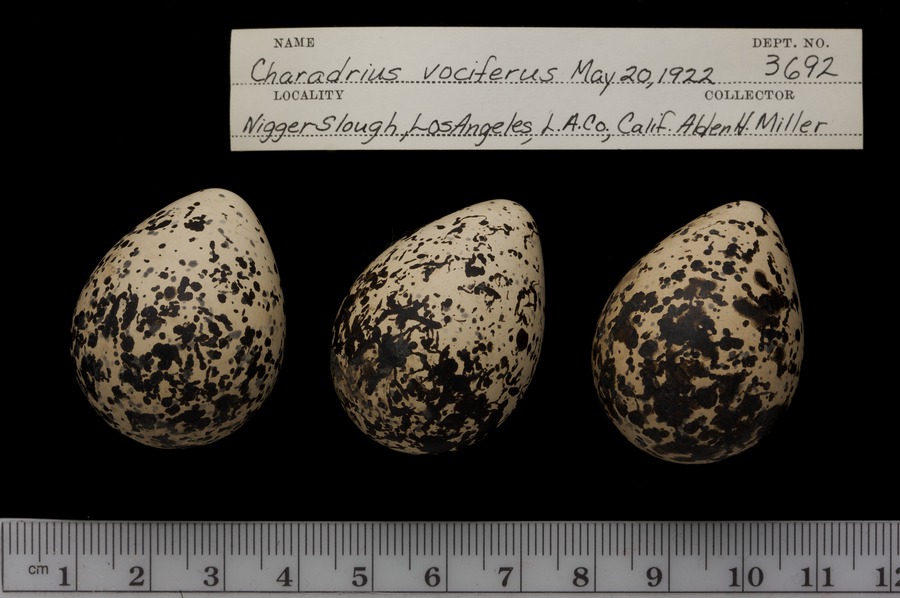 NAME DEPT. NO.
Charadrius vociferus May, 20, 1922 3692
LOCALITY COLLECTOR
Nigger Slough, Los Angeles, L.A. Co., Calif. Alden H. Miller
cm 1 2 3 4 5 6 7 8 9 10 11 12